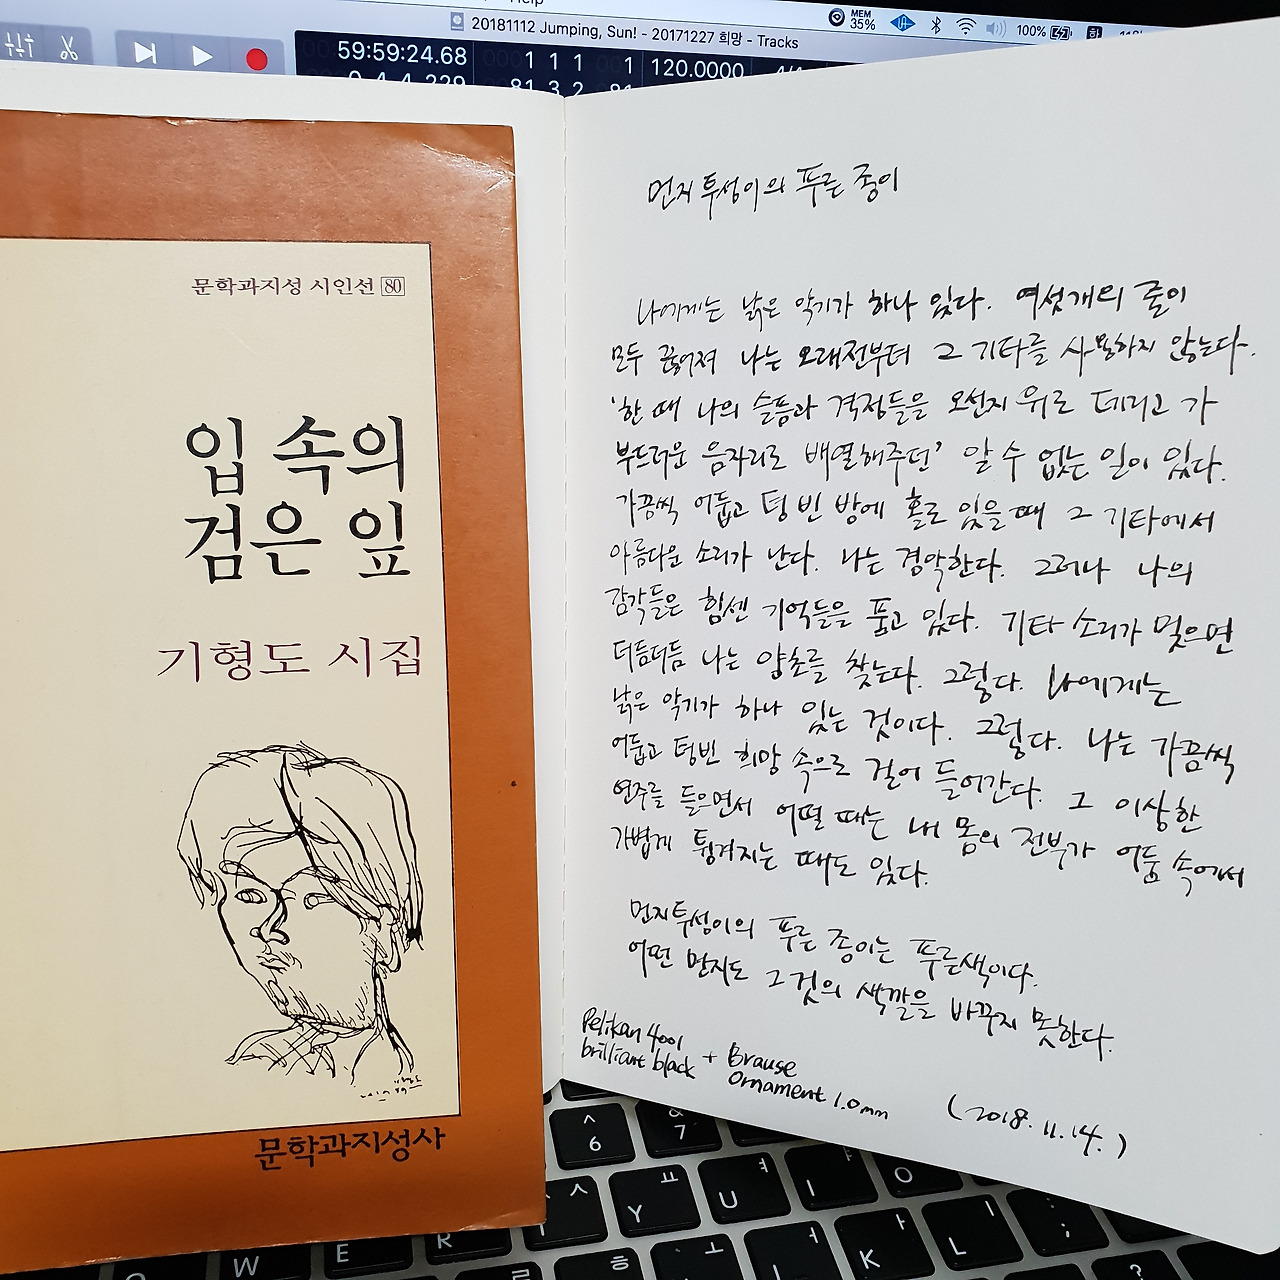 Help
MEM
35%
100%
20181112 Jumping, Sun! - 20171227 희망 - Tracks
59:59:24.68
1 1 1 1
120.0000
81 3 2
문학과지성 시인선 80
입 속의
검은 잎
기형도 시집
문학과지성사
먼지투성이의 푸른 종이
나에게는 낡은 악기가 하나 있다. 여섯개의 줄이
모두 끊어져 나는 오래전부터 그 기타를 사용하지 않는다.
'한 때 나의 슬픔과 격정들을 오선지 위로 데리고 가
부드러운 음자리로 배열해주던' 알 수 없는 일이 있다.
가끔씩 어둡고 텅 빈 방에 홀로 있을 때 그 기타에서
아름다운 소리가 난다. 나는 경악한다. 그러나 나의
감각들은 힘센 기억들을 품고 있다. 기타 소리가 멎으면
더듬더듬 나는 양초를 찾는다. 그렇다. 나에게는
낡은 악기가 하나 있는 것이다. 그렇다. 나는 가끔씩
어둡고 텅빈 희망 속으로 걸어 들어간다. 그 이상한
연주를 들으면서 어떨 때는 내 몸의 전부가 어둠 속에서
가볍게 튕겨지는 때도 있다.
먼지투성이의 푸른 종이는 푸른색이다.
어떤 먼지도 그것의 색깔을 바꾸지 못한다.
Pelikan 4001
brilliant black + Brause
Ornament 1.0mm
(2018. 11. 14.)
^ 6
& 7
ㅅ
ㅛ Y
ㅕ U
ㅑ I
O
W
E
R
ㅎ
ㅗ
ㅏ K
ㅣ L
: ;
ㄹ
?